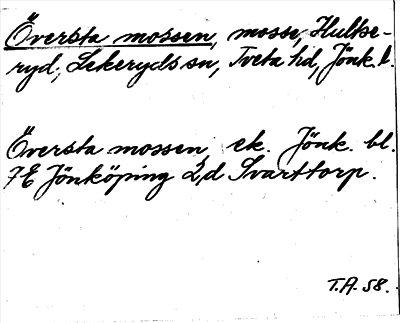 Översta mossen, mosse, Hultse-
ryd, Lekeryds sn, Tveta hd, Jönk. l.
Översta mossen ek. Jönk. bl.
7E Jönköping 2,d Svarttorp.
T.A. 58.